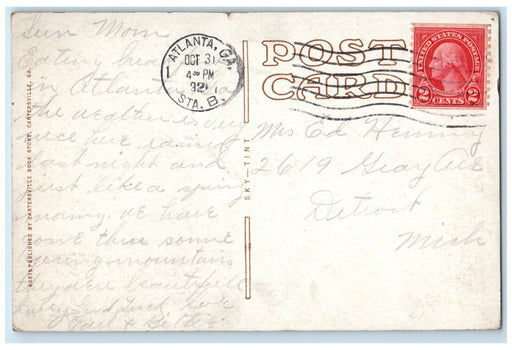 Sun Mom
Eating
in Atlanta
the weather is very
nice here rained
last night and
just like a spring
morning. We have
gone thru some
mountains
they are beautiful
luck
ATLANTA, GA.
OCT 31
4 PM
STA. B.
1
POST
CARD
UNITED STATES POSTAGE
2 CENTS 2
Mrs Ed Henning
2619 Gray Ave
Detroit
Mich
SKY—TINT
PUBLISHED BY CARTERSVILLE BOOK STORE, CARTERSVILLE, GA.